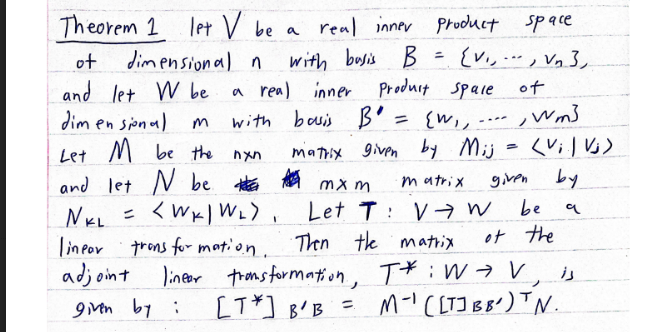 Theorem 1 let V be a real inner product space
of dimensional n with basis B = {v₁, ..., vₙ},
and let W be a real inner product space of
dimensional m with basis B' = {w₁, ...., wₘ}
Let M be the nxn matrix given by Mij = <vi | vj>
and let N be mxm matrix given by
NKL = <WK | WL>, Let T : V → W be a
linear transformation, Then the matrix of the
adjoint linear transformation, T* : W → V, is
given by : [T*] B'B = M⁻¹ ([T] BB')ᵀ N.